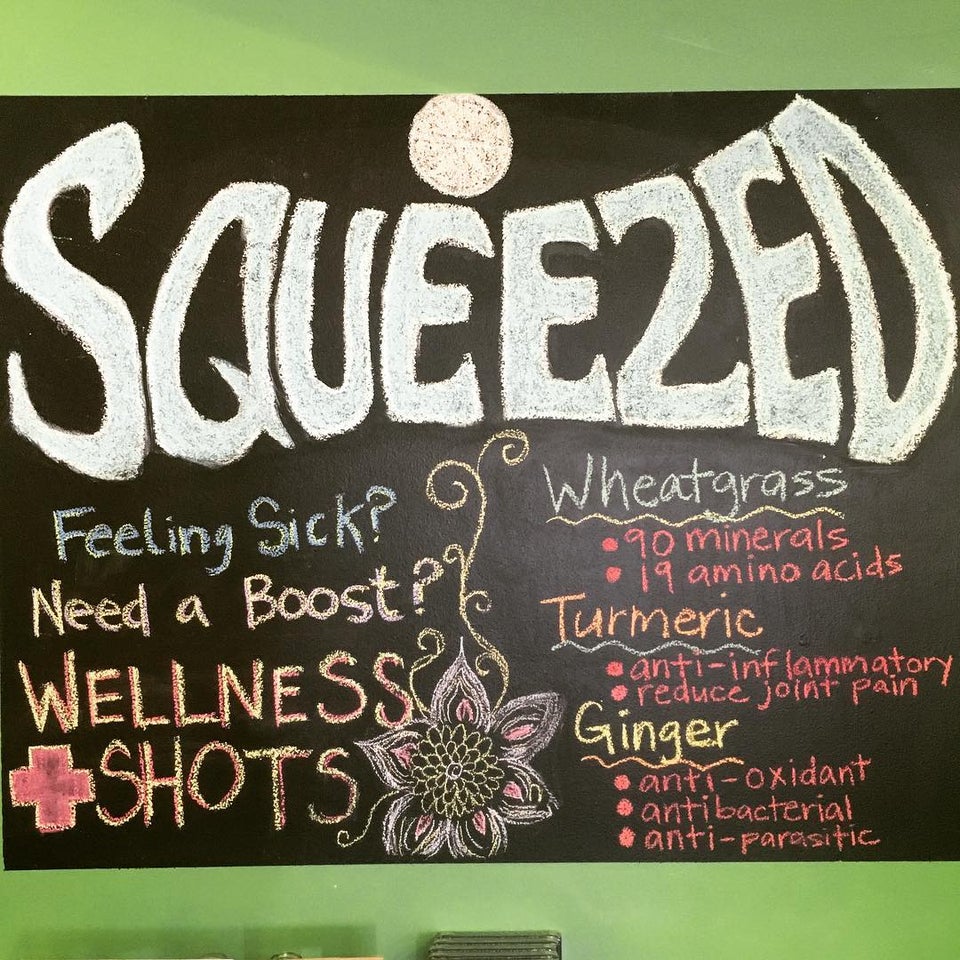 SQUEEZED
Feeling Sick?
Need a Boost?
WELLNESS
SHOTS
Wheatgrass
• 90 minerals
• 19 amino acids
Turmeric
• anti-inflammatory
• reduce joint pain
Ginger
• anti-oxidant
• antibacterial
• anti-parasitic